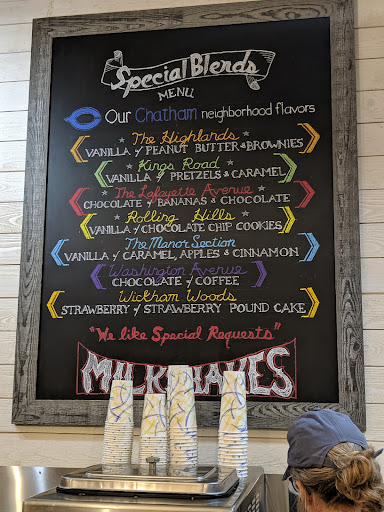 Special Blends
MENU
Our Chatham neighborhood flavors
The Highlands
VANILLA w/ PEANUT BUTTER & BROWNIES
Kings Road
VANILLA w/ PRETZELS & CARAMEL
The Lafayette Avenue
CHOCOLATE w/ BANANAS & CHOCOLATE
Rolling Hills
VANILLA w/ CHOCOLATE CHIP COOKIES
The Manor Section
VANILLA w/ CARAMEL, APPLES & CINNAMON
Washington Avenue
CHOCOLATE w/ COFFEE
Wickham Woods
STRAWBERRY w/ STRAWBERRY POUND CAKE
"We like Special Requests"
MILKSHAKES